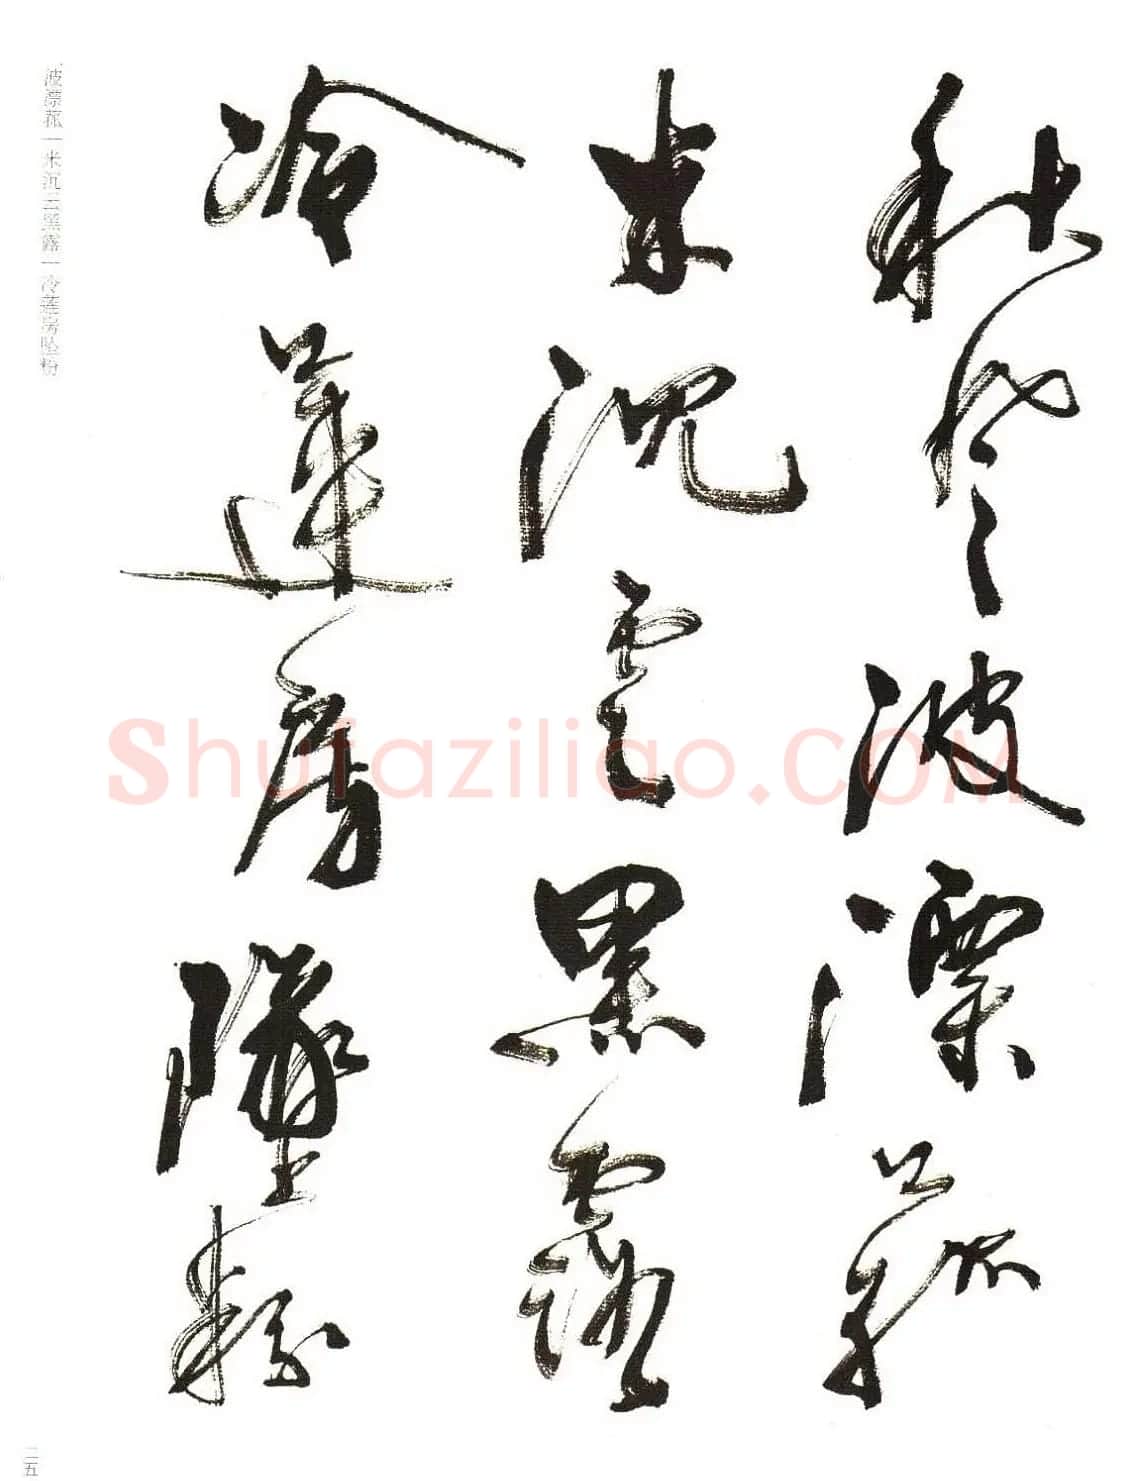 秋風波漂菰
米沉雲黑露
冷蓮房墜粉
波漂菰｜米沉云黑露｜冷莲房坠粉
二五
Shufaziliao.COM